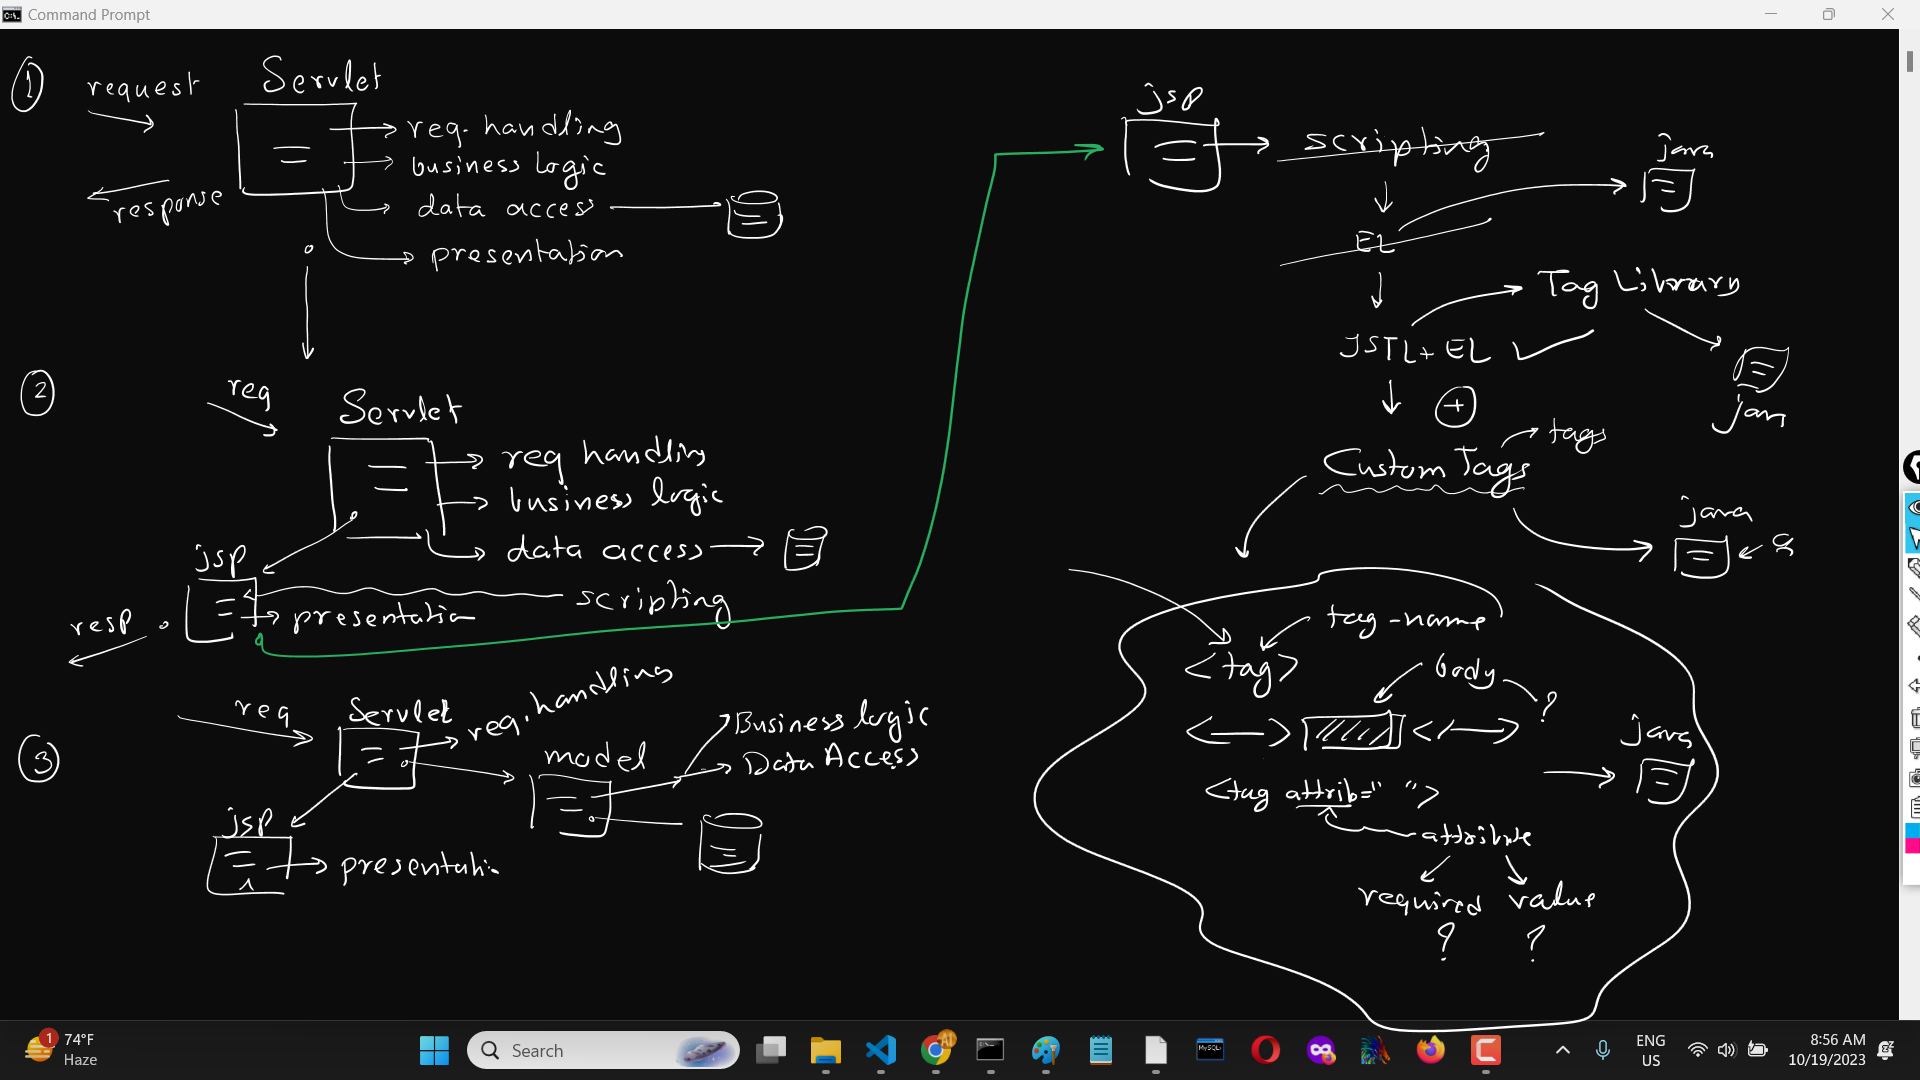 Command Prompt
1
request
Servlet
req. handling
business logic
data access
response
presentation
2
req
Servlet
req handling
business logic
data access
jsp
scripting
presentation
resp
3
req
Servlet
req. handling
model
Business logic
Data Access
jsp
presentati
jsp
scripting
java
EL
Tag Library
JSTL + EL
+
tags
Custom Tags
java
tag-name
<tag>
body
?
java
<tag attrib=" ">
attribute
required value
? ?
1
74°F
Haze
Search
MySQL
ENG
US
8:56 AM
10/19/2023